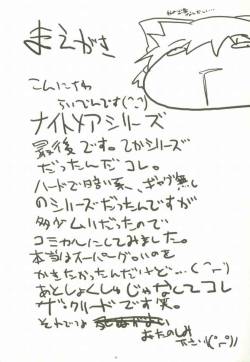 まえがき
こんにちわ
らいでんです(^^)
ナイトメアシリーズ
最後です。てかシリーズ
だったんだコレ。
ハードで暗い系、ギャグ無し
のシリーズだったんですが
多少ムリだったので
コミカルにしてみました。
本当はスーパーグ
かきたかったんだけど…
あとしょくしゅじゃなくてコレ
ザ・クリードです笑。
それでは
おたのしみ
下さい